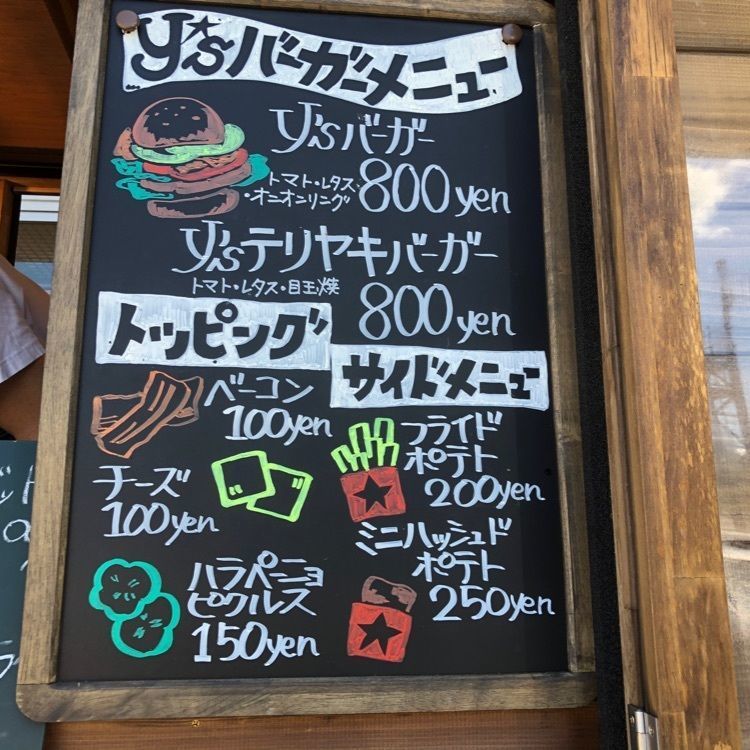 y'sバーガーメニュー
y'sバーガー
トマト・レタス
・オニオンリング
800yen
y'sテリヤキバーガー
トマト・レタス・目玉焼
800yen
トッピング
ベーコン
100yen
チーズ
100yen
ハラペーニョ
ピクルス
150yen
サイドメニュー
フライド
ポテト
200yen
ミニハッシュド
ポテト
250yen